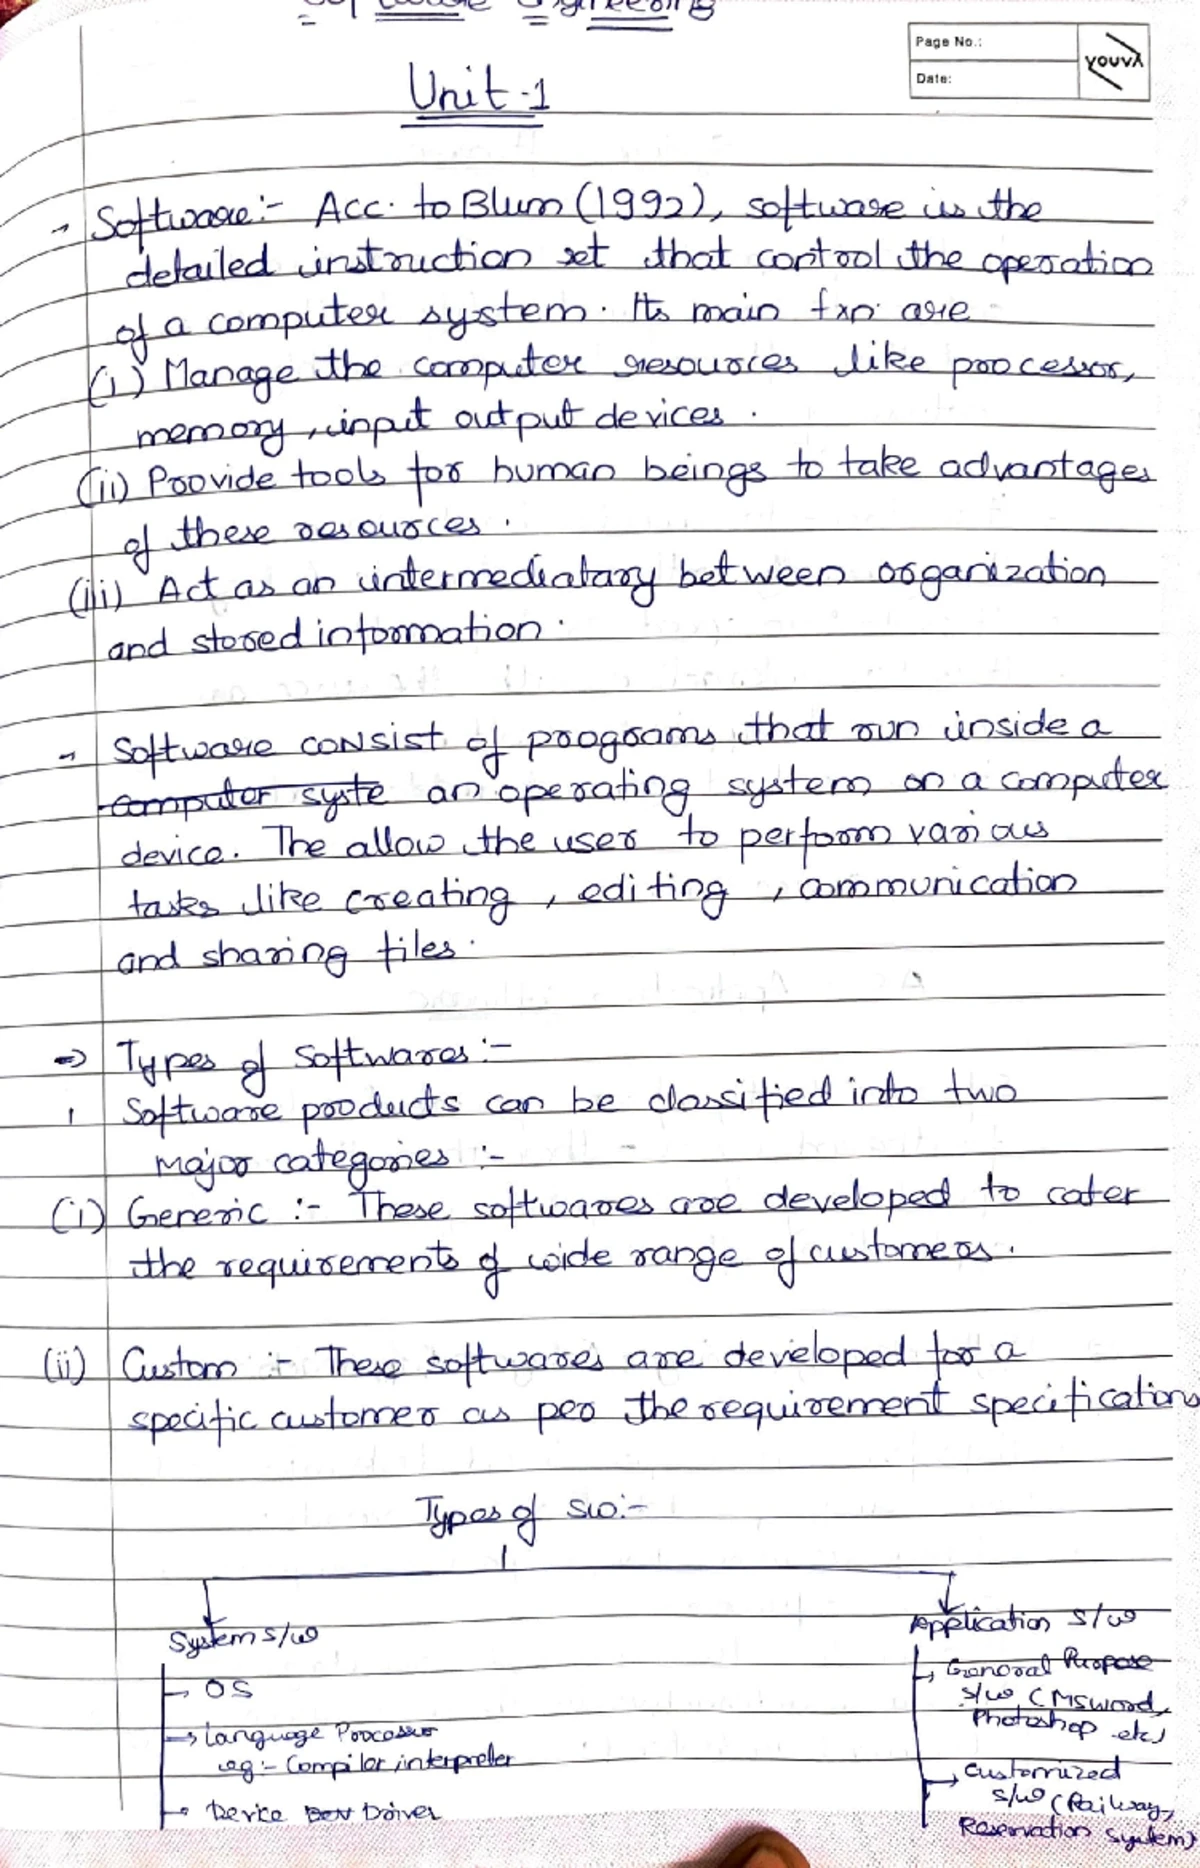 Software Engineering
Page No.:
Date:
YOUVA
Unit-1
Software:- Acc. to Blum (1992), software is the
detailed instruction set that control the operation
of a computer system. Its main fxn. are
(i) Manage the computer resources like processor,
memory, input output devices.
(ii) Provide tools for human beings to take advantages
of these resources.
(iii) Act as an intermediatary between organization
and stored information.
Software consist of programs that run inside a
computer syste an operating system on a computer
device. The allow the user to perform various
tasks like creating, editing, communication
and sharing files.
=> Types of Softwares:-
1 Software products can be classified into two
major categories :-
(i) Generic :- These softwares are developed to cater
the requirements of wide range of customers.
(ii) Custom :- These softwares are developed for a
specific customer as per the requirement specifications
Types of SW:-
System s/w
Application s/w
→ OS
→ Language Processor
eg:- Compiler, interpreter
→ Device Driver
→ General Purpose
s/w (MSword,
Photoshop etc)
→ Customized
s/w (Railway,
Reservation System)